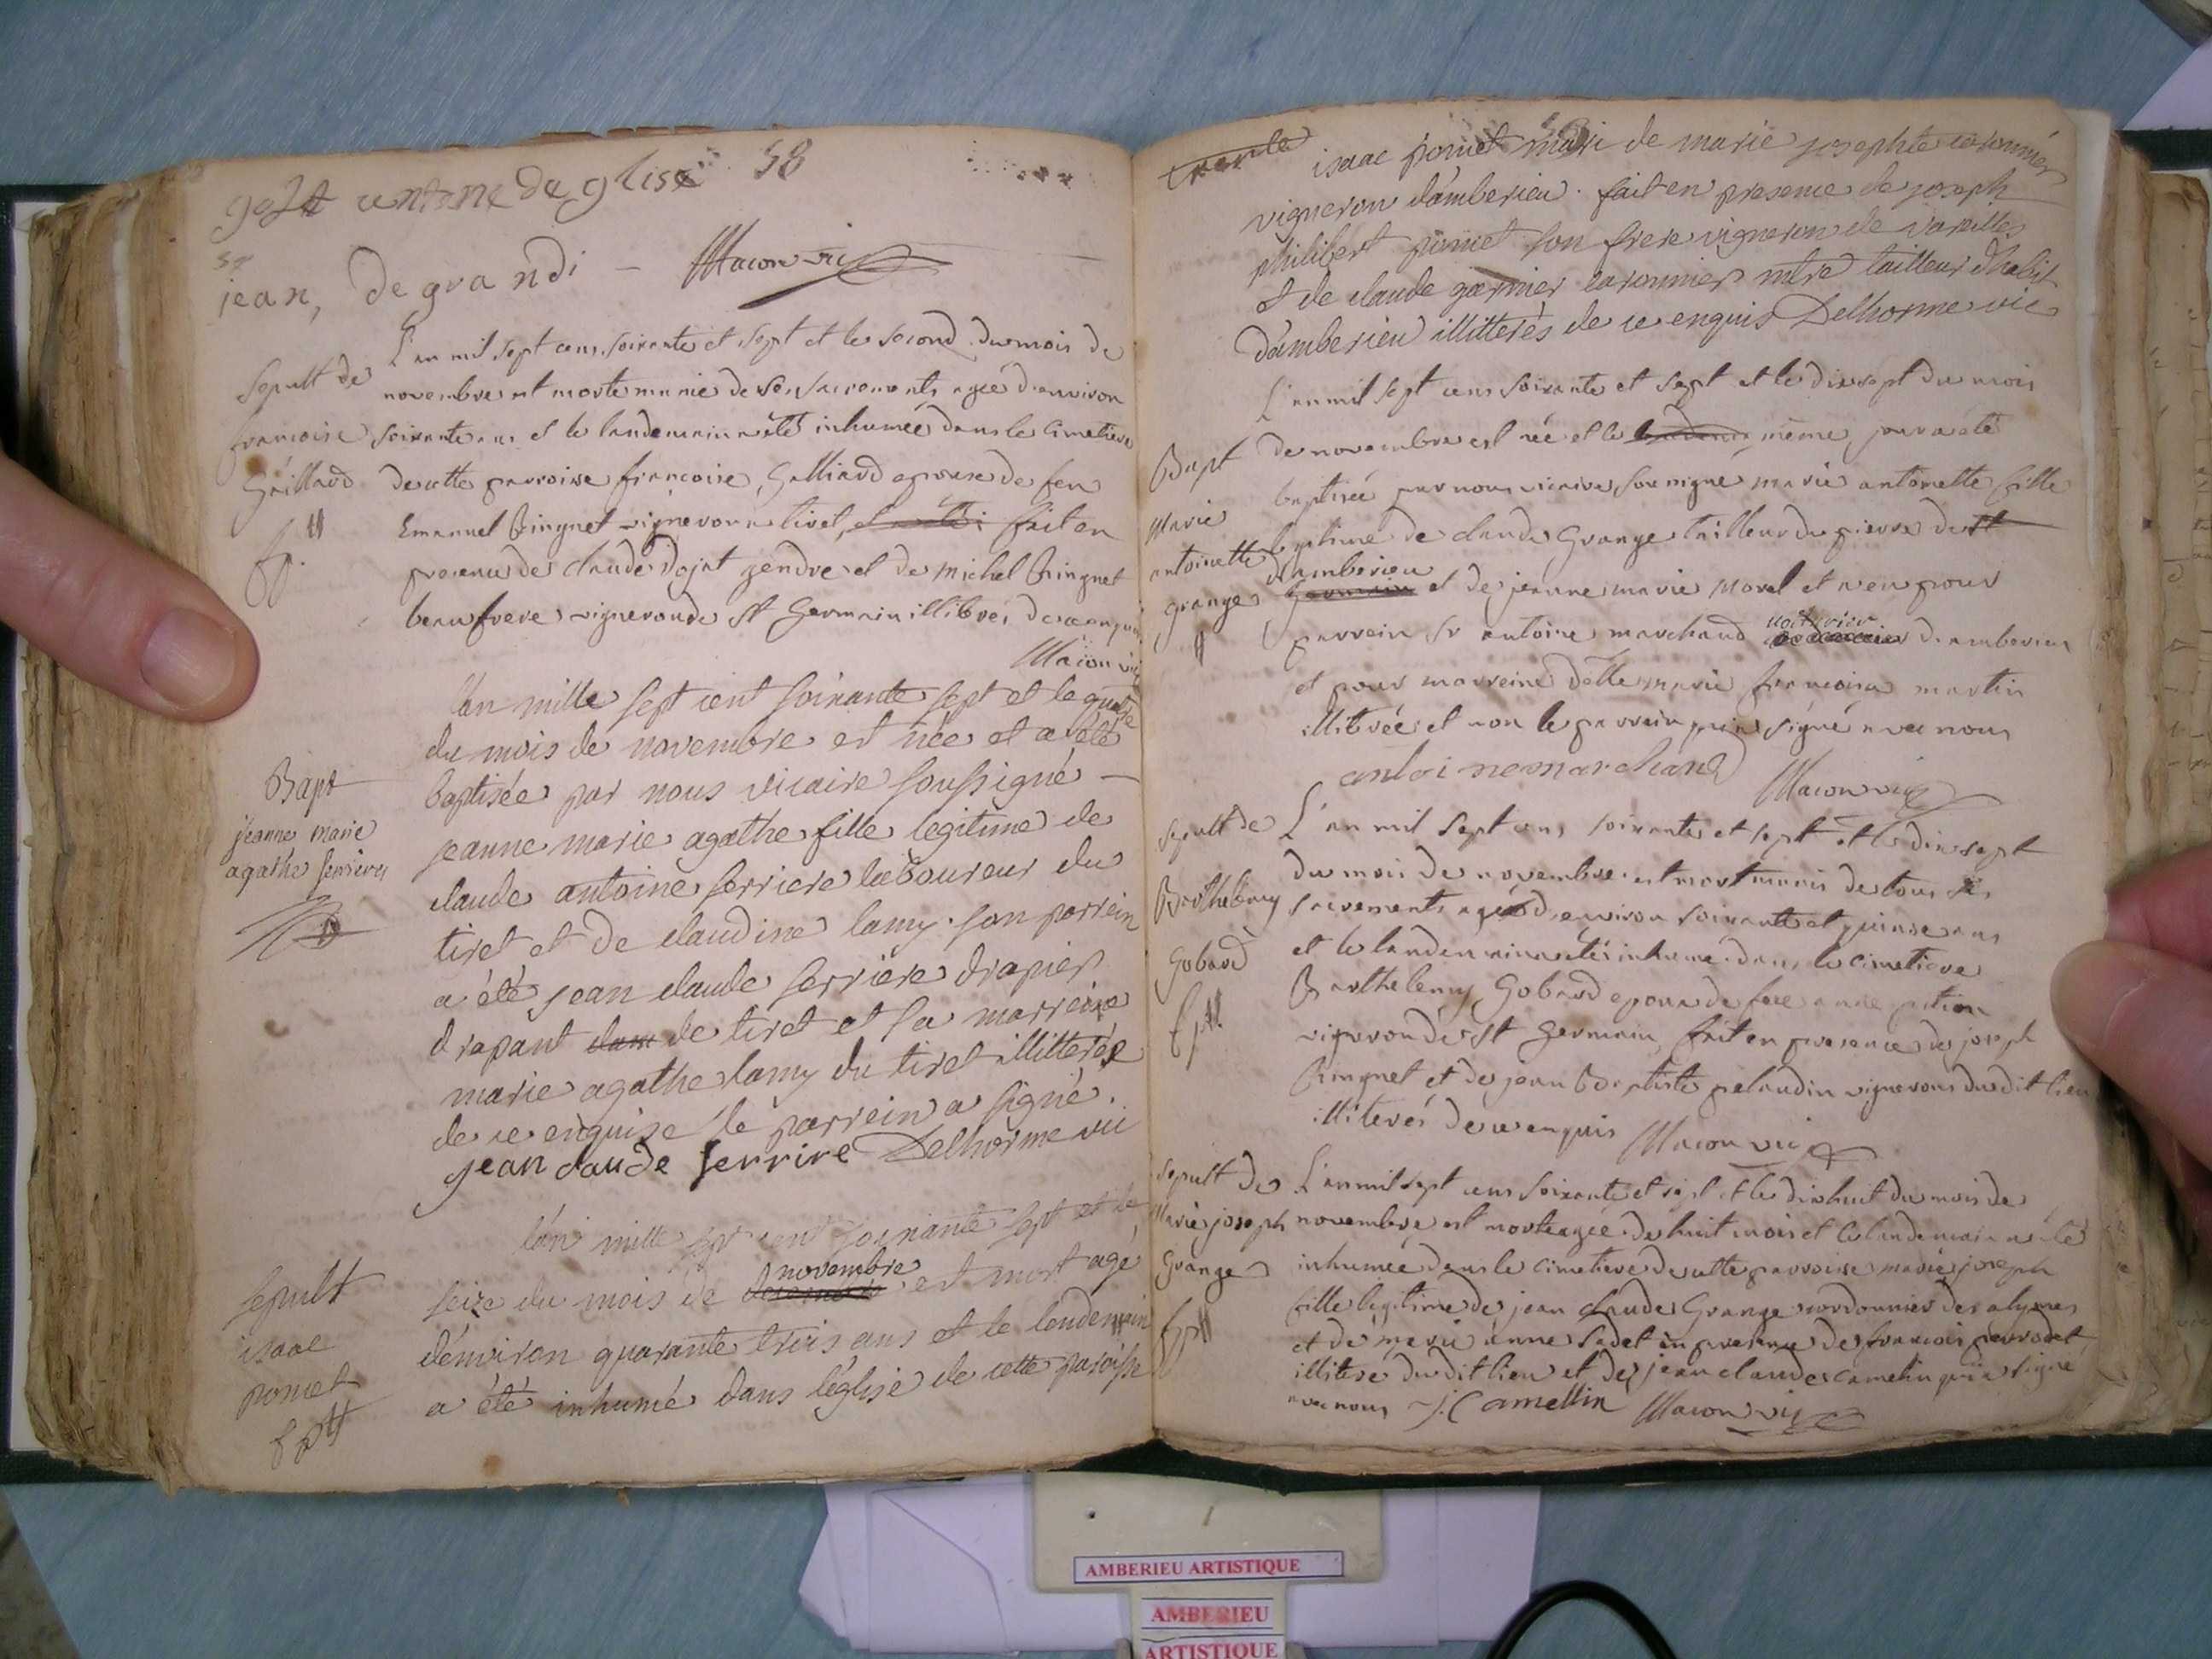 58
jean, degrandi - Macon vic
Sepult de
francoise
Gaillard
L'an mil sept cens soixante et sept et le second du mois de
novembre est morte munie de ses sacrements agée d'environ
soixante ans et le landemain a été inhumée dans le cimetiere
de cette parroisse francoise Galliard epouse de feu
Emanuel Bringuet vigneron a tiret, fait en
presence de claude Dojat gendre et de Michel Bringuet
beaufrere vignerons de St Germain illiterés de ce enquis
Macon vic
Bapt
jeanne marie
agathe ferriere
l'an mille sept cent soixante sept et le quatre
du mois de novembre est née et a été
baptisée par nous vicaire soussigné
jeanne marie agathe fille legitime de
claude antoine ferriere laboureur du
tiret et de claudine lamy. son parrein
a été jean claude ferriere drapier
drapant de tiret et sa marreine
marie agathe lamy du tiret illitterée
de ce enquise le parrein a signé.
jean claude ferrire Delhorme vic
sepult
isaac
pomet
l'an mille sept cent soixante sept et le
seize du mois de novembre est mort agé
d'environ quarante trois ans et le lendemain
a été inhumé dans l'eglise de cette paroisse
isaac pomet mari de marie josephte
vigneron d'amberieu. fait en presence de joseph
philibert pomet son frere vigneron de vareilles
et de claude garnier mtre tailleur d'habit
d'amberieu illitterés de ce enquis Delhorme vic
Bapt
Marie
antoinette
grange
L'an mil sept cens soixante et sept et le dixsept du mois
de novembre est née et le même jour a été
baptisée par nous vicaire soussigné marie antoinette fille
legitime de claude Grange tailleur de pierre de St
d'amberieu
Germain et de jeanne marie Morel et a eu pour
parrein Sr antoine marchand d'amberieu
et pour marreine Delle marie francoise martin
illiterée et non le parrein qui a signé avec nous
antoine marchand Macon vic
Sepult de
Barthelemy
Gobard
L'an mil sept cens soixante et sept et le dixsept
du mois de novembre est mort munis de tous ses
sacrements agé d'environ soixante et quinze ans
et le landemain a été inhumé dans le cimetiere
Barthelemy Gobard epoux de feue anne
vigneron de St Germain, fait en presence de joseph
Bringuet et de jean Baptiste pelaudin vignerons dudit lieu
illiterés de ce enquis Macon vic
Sepult de
Marie joseph
Grange
L'an mil sept cens soixante et sept et le dixhuit du mois de
novembre est morte agée de huit mois et le landemain a été
inhumée dans le cimetiere de cette parroisse marie joseph
fille legitime de jean claude Grange cordonnier des alymes
et de marie anne Sadet en presence de francois
illiteré dudit lieu et de jean claude camelin qui a signé
avec nous J. Camellin Macon vic
AMBERIEU ARTISTIQUE
AMBERIEU
ARTISTIQUE